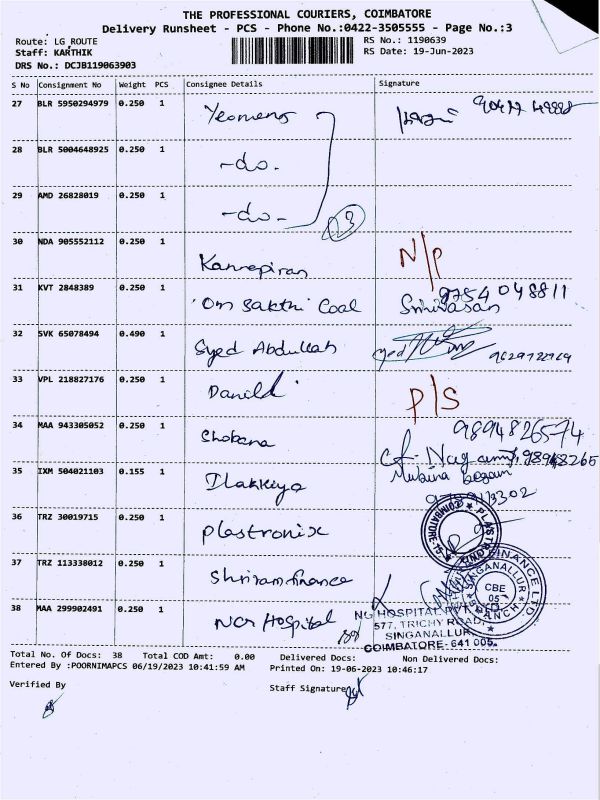 THE PROFESSIONAL COURIERS, COIMBATORE
Delivery Runsheet - PCS - Phone No.:0422-3505555 - Page No.:3
Route: LG_ROUTE
Staff: KARTHIK
DRS No.: DCJB119063903
RS No.: 1190639
RS Date: 19-Jun-2023
S No Consignment No Weight PCS Consignee Details Signature
27 BLR 5950294979 0.250 1
28 BLR 5004648925 0.250 1 -do.
29 AMD 26828019 0.250 1 -do-
3
30 NDA 905552112 0.250 1 Kannepiran N/P
31 KVT 2848389 0.250 1 'Om Sakthi' Coal Srinivasan 9754048811
32 SVK 65078494 0.490 1 Syed Abdullah
33 VPL 218827176 0.250 1 P/S
34 MAA 943305052 0.250 1 Chobana 9894826574
35 IXM 504021103 0.155 1 Ilakkiya Mubina begam
36 TRZ 30019715 0.250 1 Plastronix
37 TRZ 113338012 0.250 1 Shriram finance
SINGANALLUR
CBE
05
BRANCH
38 MAA 299902491 0.250 1 Hospital
NG HOSPITAL PVT LTD.
577, TRICHY ROAD,
SINGANALLUR,
COIMBATORE-641 005.
Total No. Of Docs: 38 Total COD Amt: 0.00 Delivered Docs: Non Delivered Docs:
Entered By :POORNIMAPCS 06/19/2023 10:41:59 AM Printed On: 19-06-2023 10:46:17
Verified By Staff Signature